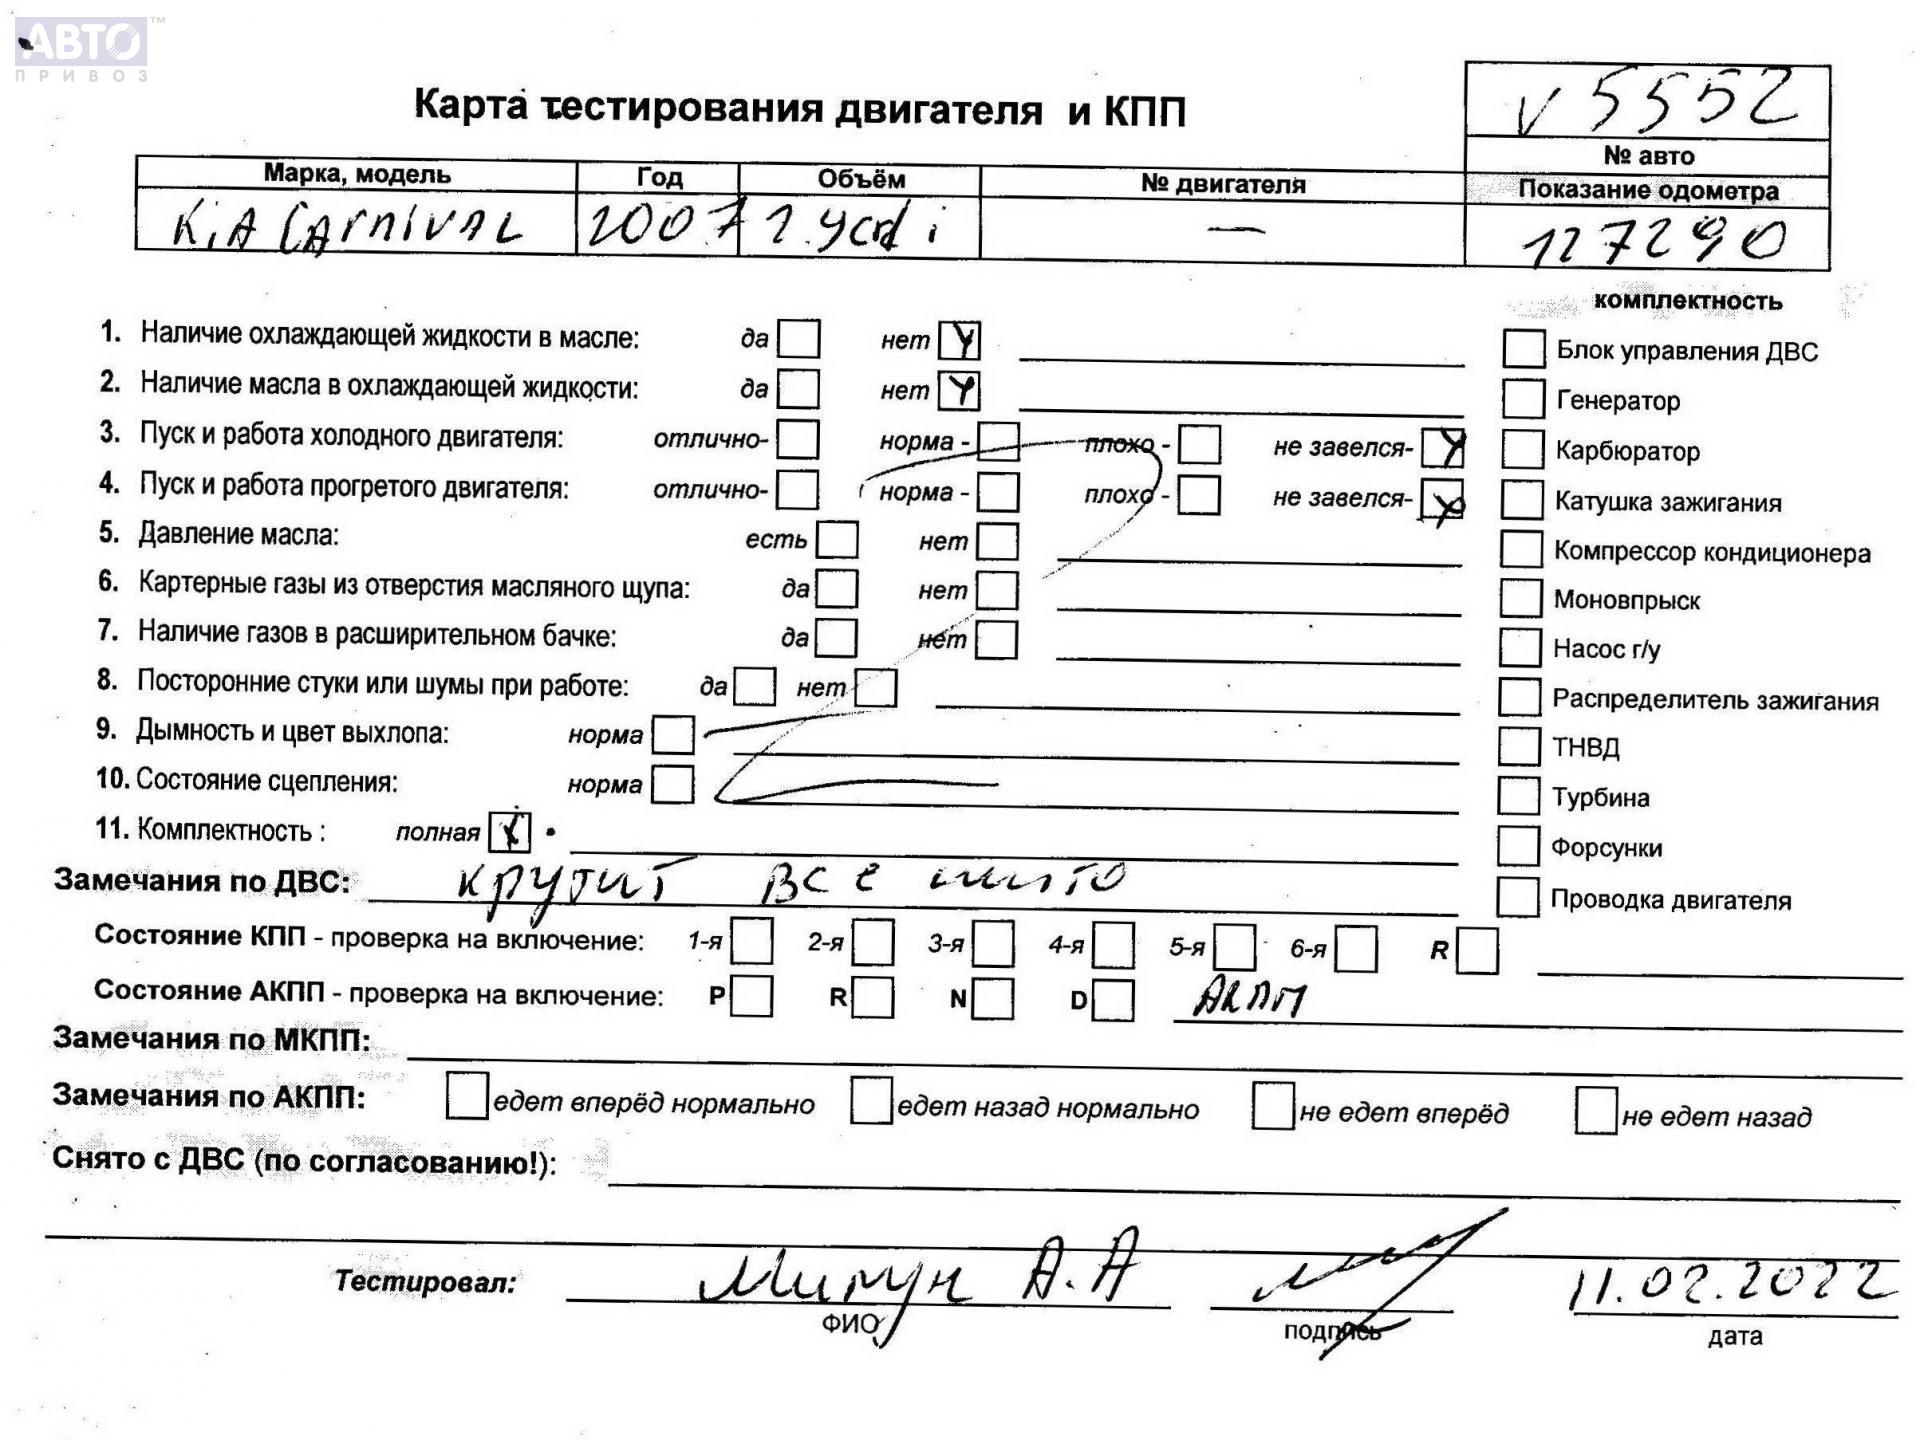 АВТО™
ПРИВОЗ
Карта тестирования двигателя и КПП
v 5552
№ авто
Марка, модель Год Объём № двигателя Показание одометра
KiA CArnivAL 2007 2.9crdi — 127290
комплектность
1. Наличие охлаждающей жидкости в масле: да нет
Блок управления ДВС
2. Наличие масла в охлаждающей жидкости: да нет
Генератор
3. Пуск и работа холодного двигателя: отлично- норма - плохо - не завелся-
Карбюратор
4. Пуск и работа прогретого двигателя: отлично- норма - плохо - не завелся-
Катушка зажигания
5. Давление масла: есть нет
Компрессор кондиционера
6. Картерные газы из отверстия масляного щупа: да нет
Моновпрыск
7. Наличие газов в расширительном бачке: да нет
Насос г/у
8. Посторонние стуки или шумы при работе: да нет
Распределитель зажигания
9. Дымность и цвет выхлопа: норма
ТНВД
10. Состояние сцепления: норма
Турбина
11. Комплектность : полная
Форсунки
Замечания по ДВС: крутит все
Проводка двигателя
Состояние КПП - проверка на включение: 1-я 2-я 3-я 4-я 5-я 6-я R
Состояние АКПП - проверка на включение: P R N D АКПП
Замечания по МКПП:
Замечания по АКПП: едет вперёд нормально едет назад нормально не едет вперёд не едет назад
Снято с ДВС (по согласованию!):
Тестировал: А.А 11.02.2022
ФИО подпись дата